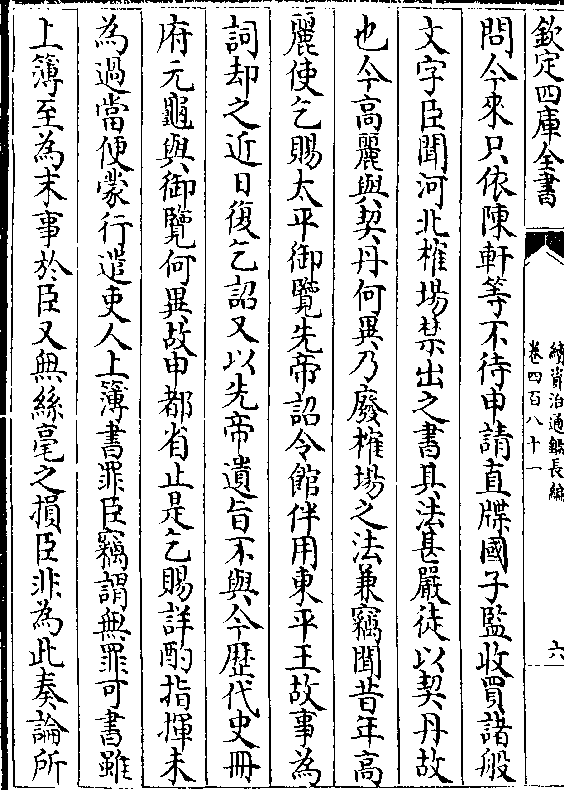 欽定四庫全書
續資治通鑑長編
卷四百八十一
六
問今來只依陳軒等不待申請直牒國子監收買諸般
文字臣聞河北榷場禁出之書其法甚嚴徒以契丹故
也今高麗與契丹何異乃廢榷場之法兼竊聞昔年高
麗使乞賜太平御覽先帝詔令館伴用東平王故事為
詞却之近日復乞詔又以先帝遺旨不與今歴代史冊
府元龜與御覽何異故申都省止是乞賜詳酌指揮未
為過當便蒙行遣吏人上簿書罪臣竊謂無罪可書雖
上簿至為末事於臣又無絲毫之損臣非為此奏論所